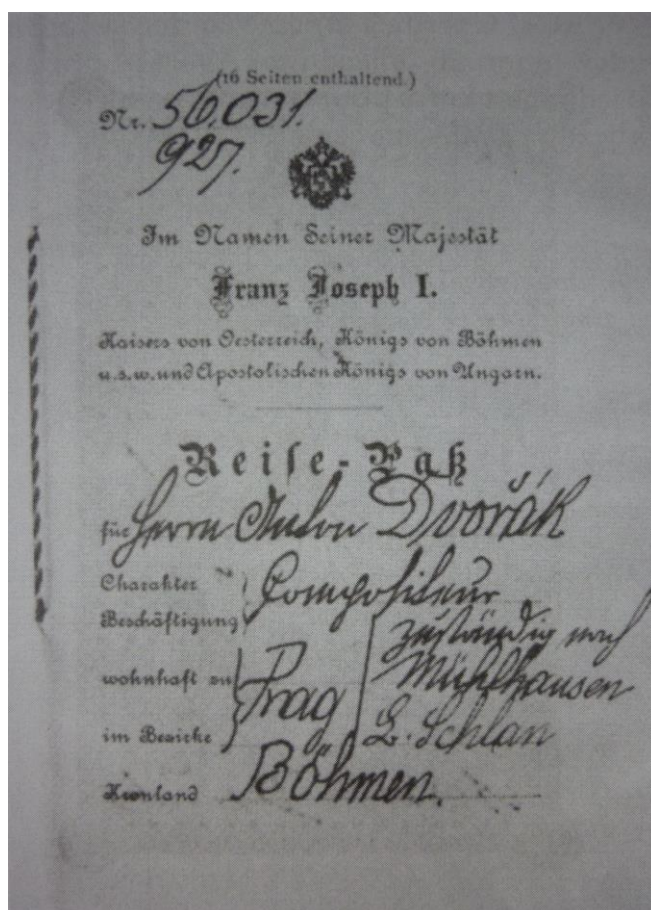 (16 Seiten enthaltend.)
Nr. 56,031.
927.
Im Namen Seiner Majestät
Franz Joseph I.
Kaisers von Oesterreich, Königs von Böhmen
u.s.w. und Apostolischen Königs von Ungarn.
Reise-Paß
für Herrn Anton Dvořák
Charakter
Beschäftigung
Compositeur
wohnhaft zu
im Bezirke
Prag
zuständig nach
Mühlhausen
B. Schlan
Kronland Böhmen.